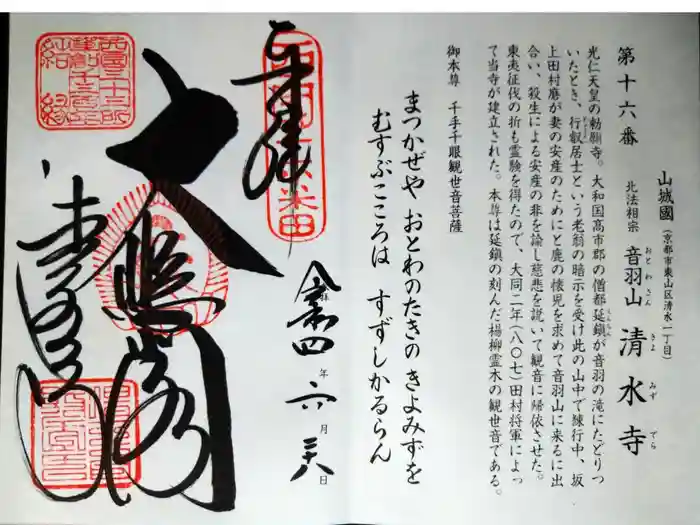 第十六番
山城國(京都市東山区清水一丁目)
北法相宗 音羽山 清水寺
おとわさん きよみずでら
光仁天皇の勅願寺。大和国高市郡の僧都延鎮が音羽の滝にたどりつ
いたとき、行叡居士という老翁の暗示を受け此の山中で練行中、坂
上田村麿が妻の安産のためにと鹿の懐児を求めて音羽山に来るに出
合い、殺生による安産の非を論し慈悲を説いて観音に帰依させた。
東夷征伐の折も霊験を得たので、大同二年(八〇七)田村将軍によっ
て当寺が建立された。本尊は延鎮の刻んだ楊柳霊木の観世音である。
御本尊 千手千眼観世音菩薩
まつかぜや おとわのたきの きよみずを
むすぶこころは すずしかるらん
奉拝
令和四年六月二六日
大悲閣
清水寺